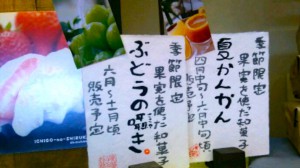 季節限定
果実を使た和菓子
夏かんかん
四月中旬〜六月中旬頃
販売予定
季節限定
果実を使た和菓子
ぶどうの囁き。
六月〜十一月頃
販売予定